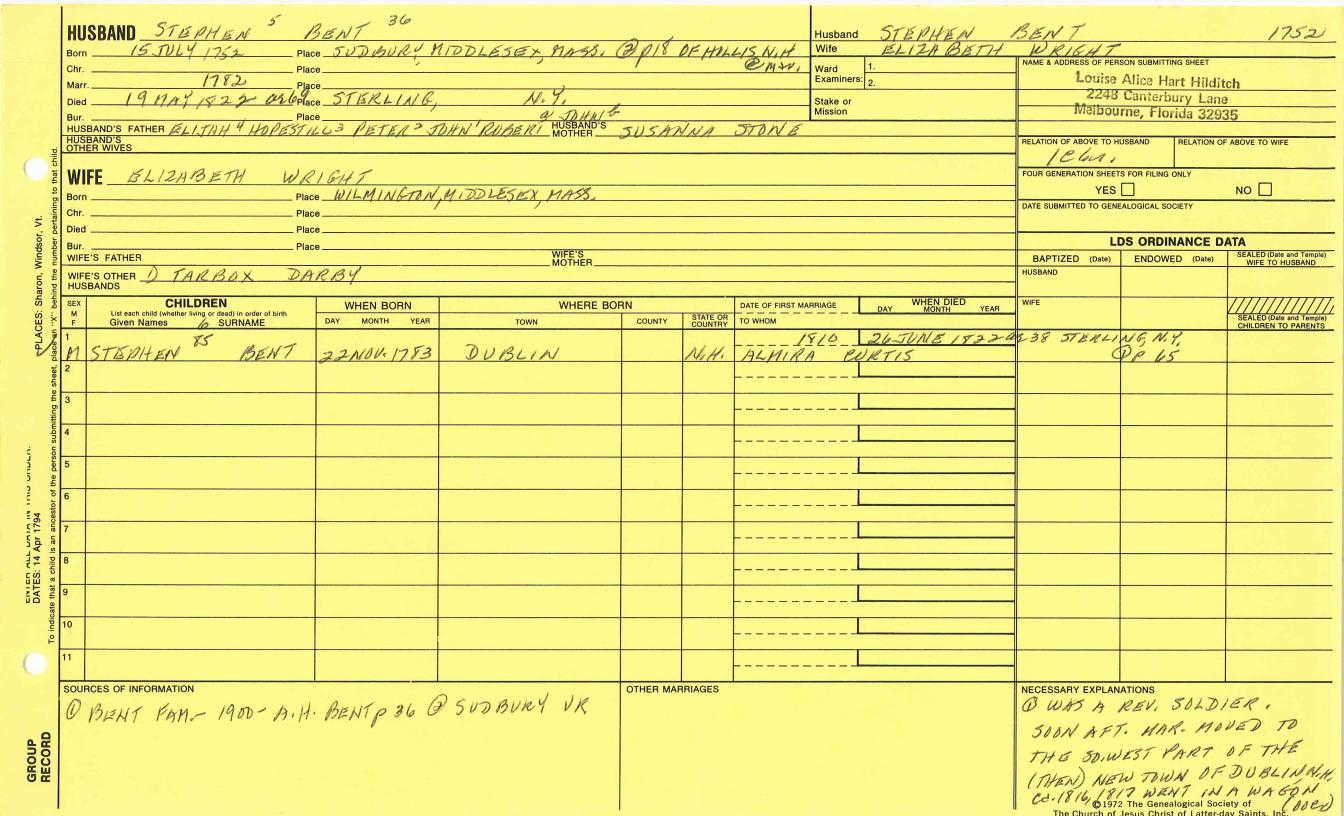 HUSBAND STEPHEN 5 BENT 36
Born 15 JULY 1752 Place SUDBURY, MIDDLESEX, MASS. @ P18 OF HOLLIS, N.H
Chr. Place @ MAR.
Marr. 1782 Place
Died 19 MAY 1822 ae69 Place STERLING, N.Y.
Bur. Place
HUSBAND'S FATHER ELIJAH 4 HOPESTILL 3 PETER 2 JOHN 1 ROBERT JOHN HUSBAND'S MOTHER SUSANNA STONE
HUSBAND'S OTHER WIVES
WIFE ELIZABETH WRIGHT
Born Place WILMINGTON, MIDDLESEX, MASS.
Chr. Place
Died Place
Bur. Place
WIFE'S FATHER WIFE'S MOTHER
WIFE'S OTHER HUSBANDS D TARBOX DARBY
Husband STEPHEN BENT 1752
Wife ELIZABETH WRIGHT
Ward Examiners: 1.
2.
Stake or Mission
NAME & ADDRESS OF PERSON SUBMITTING SHEET
Louise Alice Hart Hilditch
2248 Canterbury Lane
Melbourne, Florida 32935
RELATION OF ABOVE TO HUSBAND RELATION OF ABOVE TO WIFE
FOUR GENERATION SHEETS FOR FILING ONLY
YES NO
DATE SUBMITTED TO GENEALOGICAL SOCIETY
LDS ORDINANCE DATA
BAPTIZED (Date) ENDOWED (Date) SEALED (Date and Temple) WIFE TO HUSBAND
HUSBAND
WIFE
SEALED (Date and Temple) CHILDREN TO PARENTS
SEX M F CHILDREN WHEN BORN WHERE BORN DATE OF FIRST MARRIAGE WHEN DIED
List each child (whether living or dead) in order of birth
Given Names 6 SURNAME DAY MONTH YEAR TOWN COUNTY STATE OR COUNTRY TO WHOM DAY MONTH YEAR
1 85 1810 26 JUNE 1822 ae 38 STERLING, N.Y.
M STEPHEN BENT 22 NOV. 1783 DUBLIN N.H. ALMIRA CURTIS @ P 65
2
3
4
5
6
7
8
9
10
11
SOURCES OF INFORMATION
① BENT FAM. - 1900 - A.H. BENT p 36 @ SUDBURY VR
OTHER MARRIAGES
NECESSARY EXPLANATIONS
① WAS A REV. SOLDIER.
SOON AFT. MAR. MOVED TO
THE SO.WEST PART OF THE
(THEN) NEW TOWN OF DUBLIN N.H.
Cd. 1816, 1817 WENT IN A WAGON
©1972 The Genealogical Society of
The Church of Jesus Christ of Latter-day Saints, Inc.
PLACES: Sharon, Windsor, Vt.
ENTER ALL DATA IN THIS ORDER:
DATES: 14 Apr 1794
To indicate that a child is an ancestor of the person submitting the sheet, place an "X" behind the number pertaining to that child.
GROUP RECORD